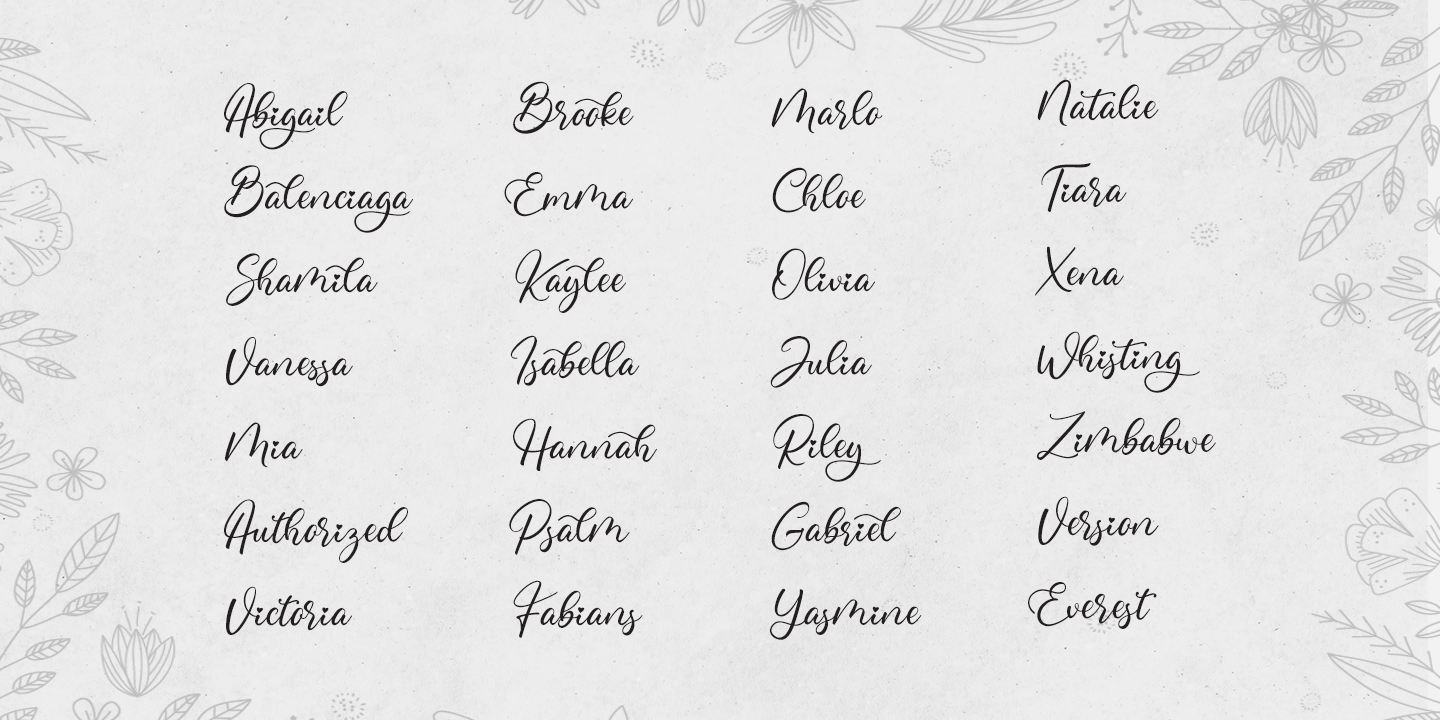 Abigail Brooke Marlo Natalie
Balenciaga Emma Chloe Tiara
Shamila Kaylee Olivia Xena
Vanessa Isabella Julia Whisting
Mia Hannah Riley Zimbabwe
Authorized Psalm Gabriel Version
Victoria Fabians Yasmine Everest